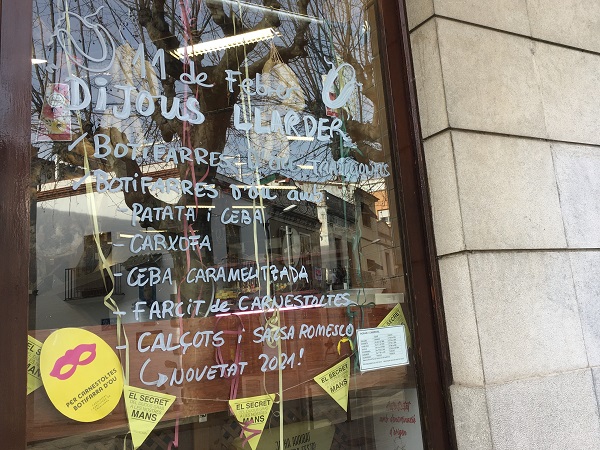 11 de Febrer
DIJOUS LLARDER
✓ BOTIFARRES D'OUS TRADICIONALS
✓ BOTIFARRES D'OU AMB:
- PATATA i CEBA
- CARXOFA
- CEBA CARAMELITZADA
- FARCIT de CARNESTOLTES
- CALÇOTS i SALSA ROMESCO
↳ NOVETAT 2021!
PER CARNESTOLTES
BOTIFARRA D'OU
EL SECRET
MANS
EL SECRET
MANS
EL SECRET
MANS
EL SECRET